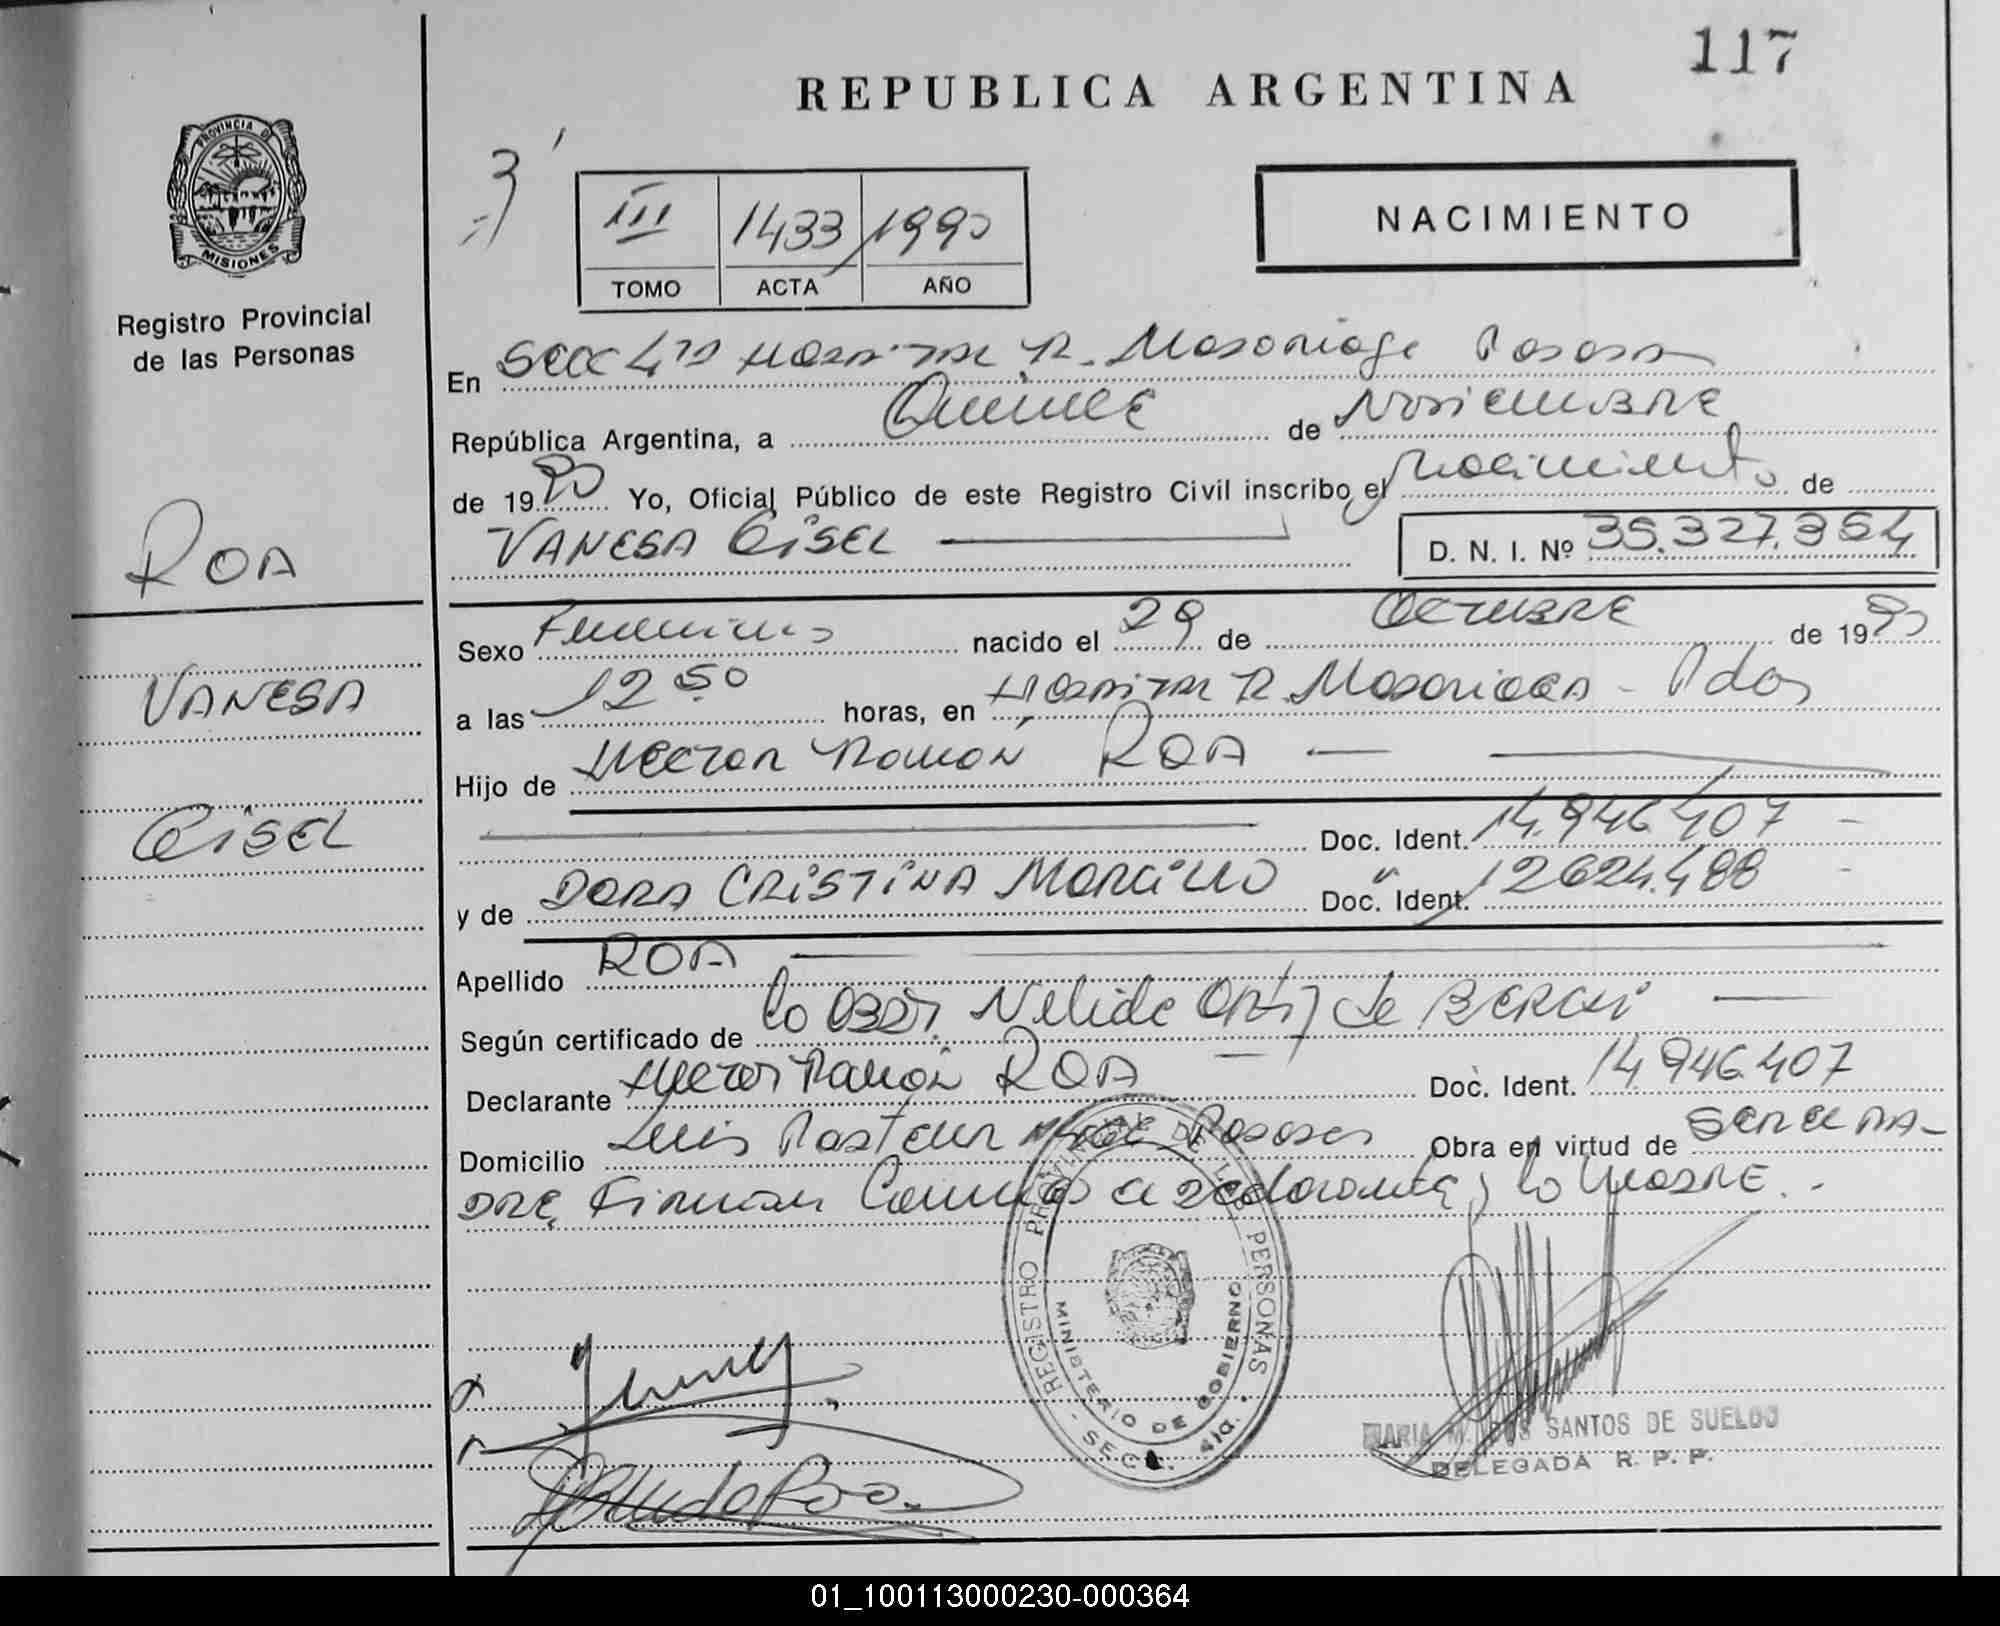 117
REPUBLICA ARGENTINA
PROVINCIA DE
MISIONES
Registro Provincial
de las Personas
III 1433 1990
TOMO ACTA AÑO
NACIMIENTO
En Secc 4ta Hospital R. Madariaga Posadas
República Argentina, a Quince de Noviembre
de 1990 Yo, Oficial Público de este Registro Civil inscribo el Nacimiento de
VANESA GISEL
D. N. I. Nº 35.327.364
ROA
VANESA
GISEL
Sexo Femenino nacido el 29 de Octubre de 1990
a las 12 50 horas, en Hospital R. Madariaga - Pdas
Hijo de Hector Ramón ROA
Doc. Ident. 14.946.407
y de DORA CRISTINA MORCILLO Doc. Ident. 12624.488
Apellido ROA
Según certificado de la Obst. Nelida Ortiz de
Declarante Hector Ramón ROA Doc. Ident. 14.946.407
Domicilio Luis Pasteur Posadas Obra en virtud de
Firman el declarante y la Madre.
REGISTRO PROVINCIAL DE LAS PERSONAS
MINISTERIO DE GOBIERNO
SECC. 4ta.
MARIA M. DOS SANTOS DE SUELDO
DELEGADA R. P. P.
01_100113000230-000364